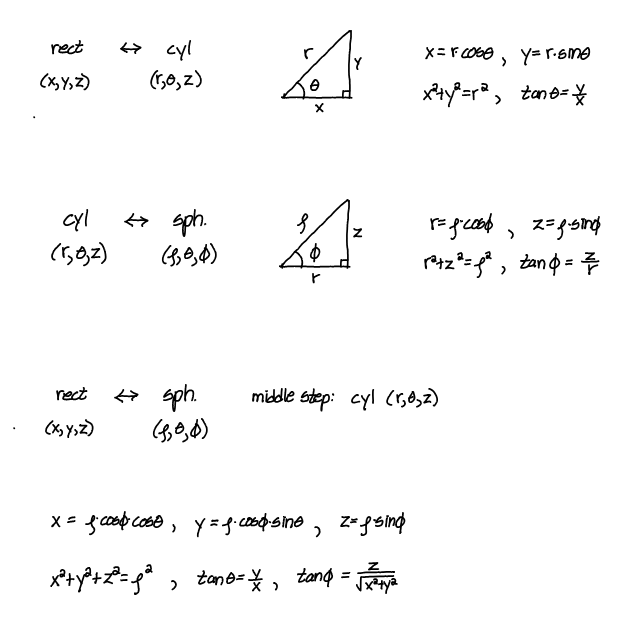 rect ↔ cyl
(x,y,z) (r,θ,z)
r y θ x
x=r·cosθ, y=r·sinθ
x²+y²=r², tanθ=y/x
cyl ↔ sph.
(r,θ,z) (ρ,θ,ϕ)
ρ z ϕ r
r=ρ·cosϕ, z=ρ·sinϕ
r²+z²=ρ², tanϕ=z/r
rect ↔ sph. middle step: cyl (r,θ,z)
(x,y,z) (ρ,θ,ϕ)
x=ρ·cosϕ·cosθ, y=ρ·cosϕ·sinθ, z=ρ·sinϕ
x²+y²+z²=ρ², tanθ=y/x, tanϕ=z/√(x²+y²)